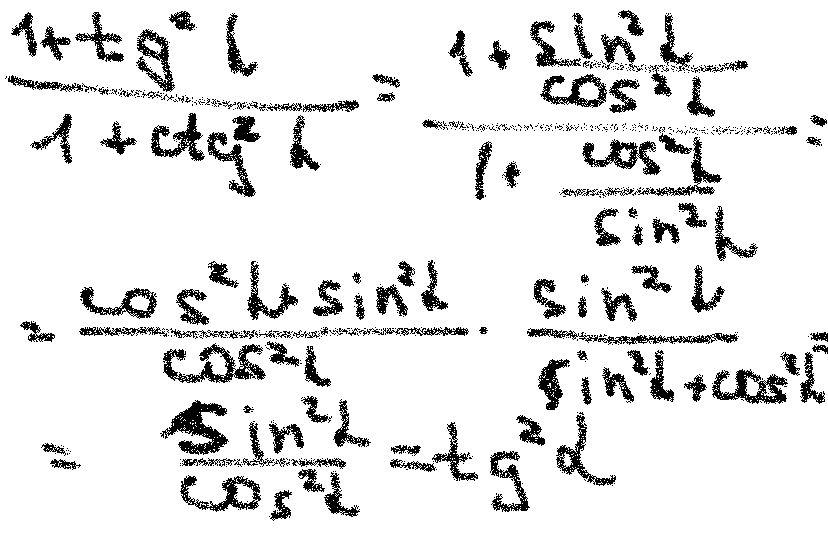 (1 + tg² α) / (1 + ctg² α) = (1 + sin² α / cos² α) / (1 + cos² α / sin² α) =
= (cos² α + sin² α) / cos² α · sin² α / (sin² α + cos² α) =
= sin² α / cos² α = tg² α